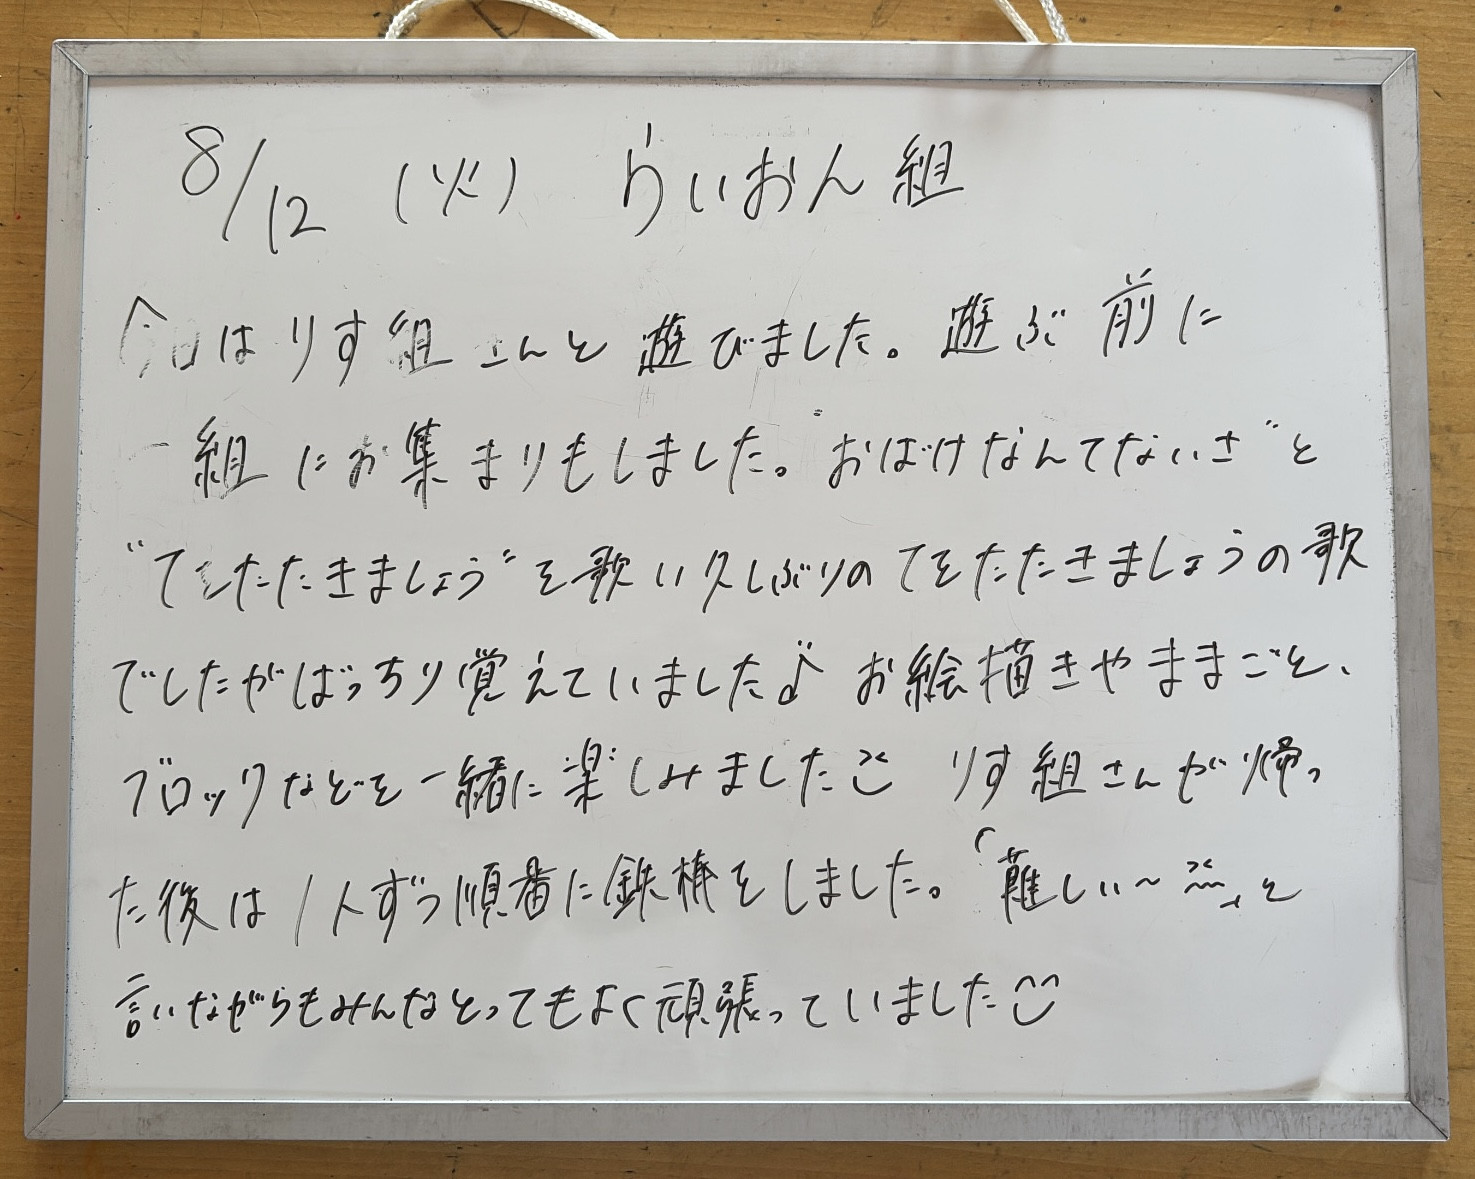 8/12 (火) らいおん組
今日はりす組さんと遊びました。遊ぶ前に
一組にお集まりもしました。"おばけなんてないさ"と
"てをたたきましょう"を歌い久しぶりのてをたたきましょうの歌
でしたがばっちり覚えていました♪ お絵描きやままごと、
ブロックなどを一緒に楽しみました りす組さんが帰っ
た後は1人ずつ順番に鉄棒をしました。「難しい〜」と
言いながらもみんなとってもよく頑張っていました